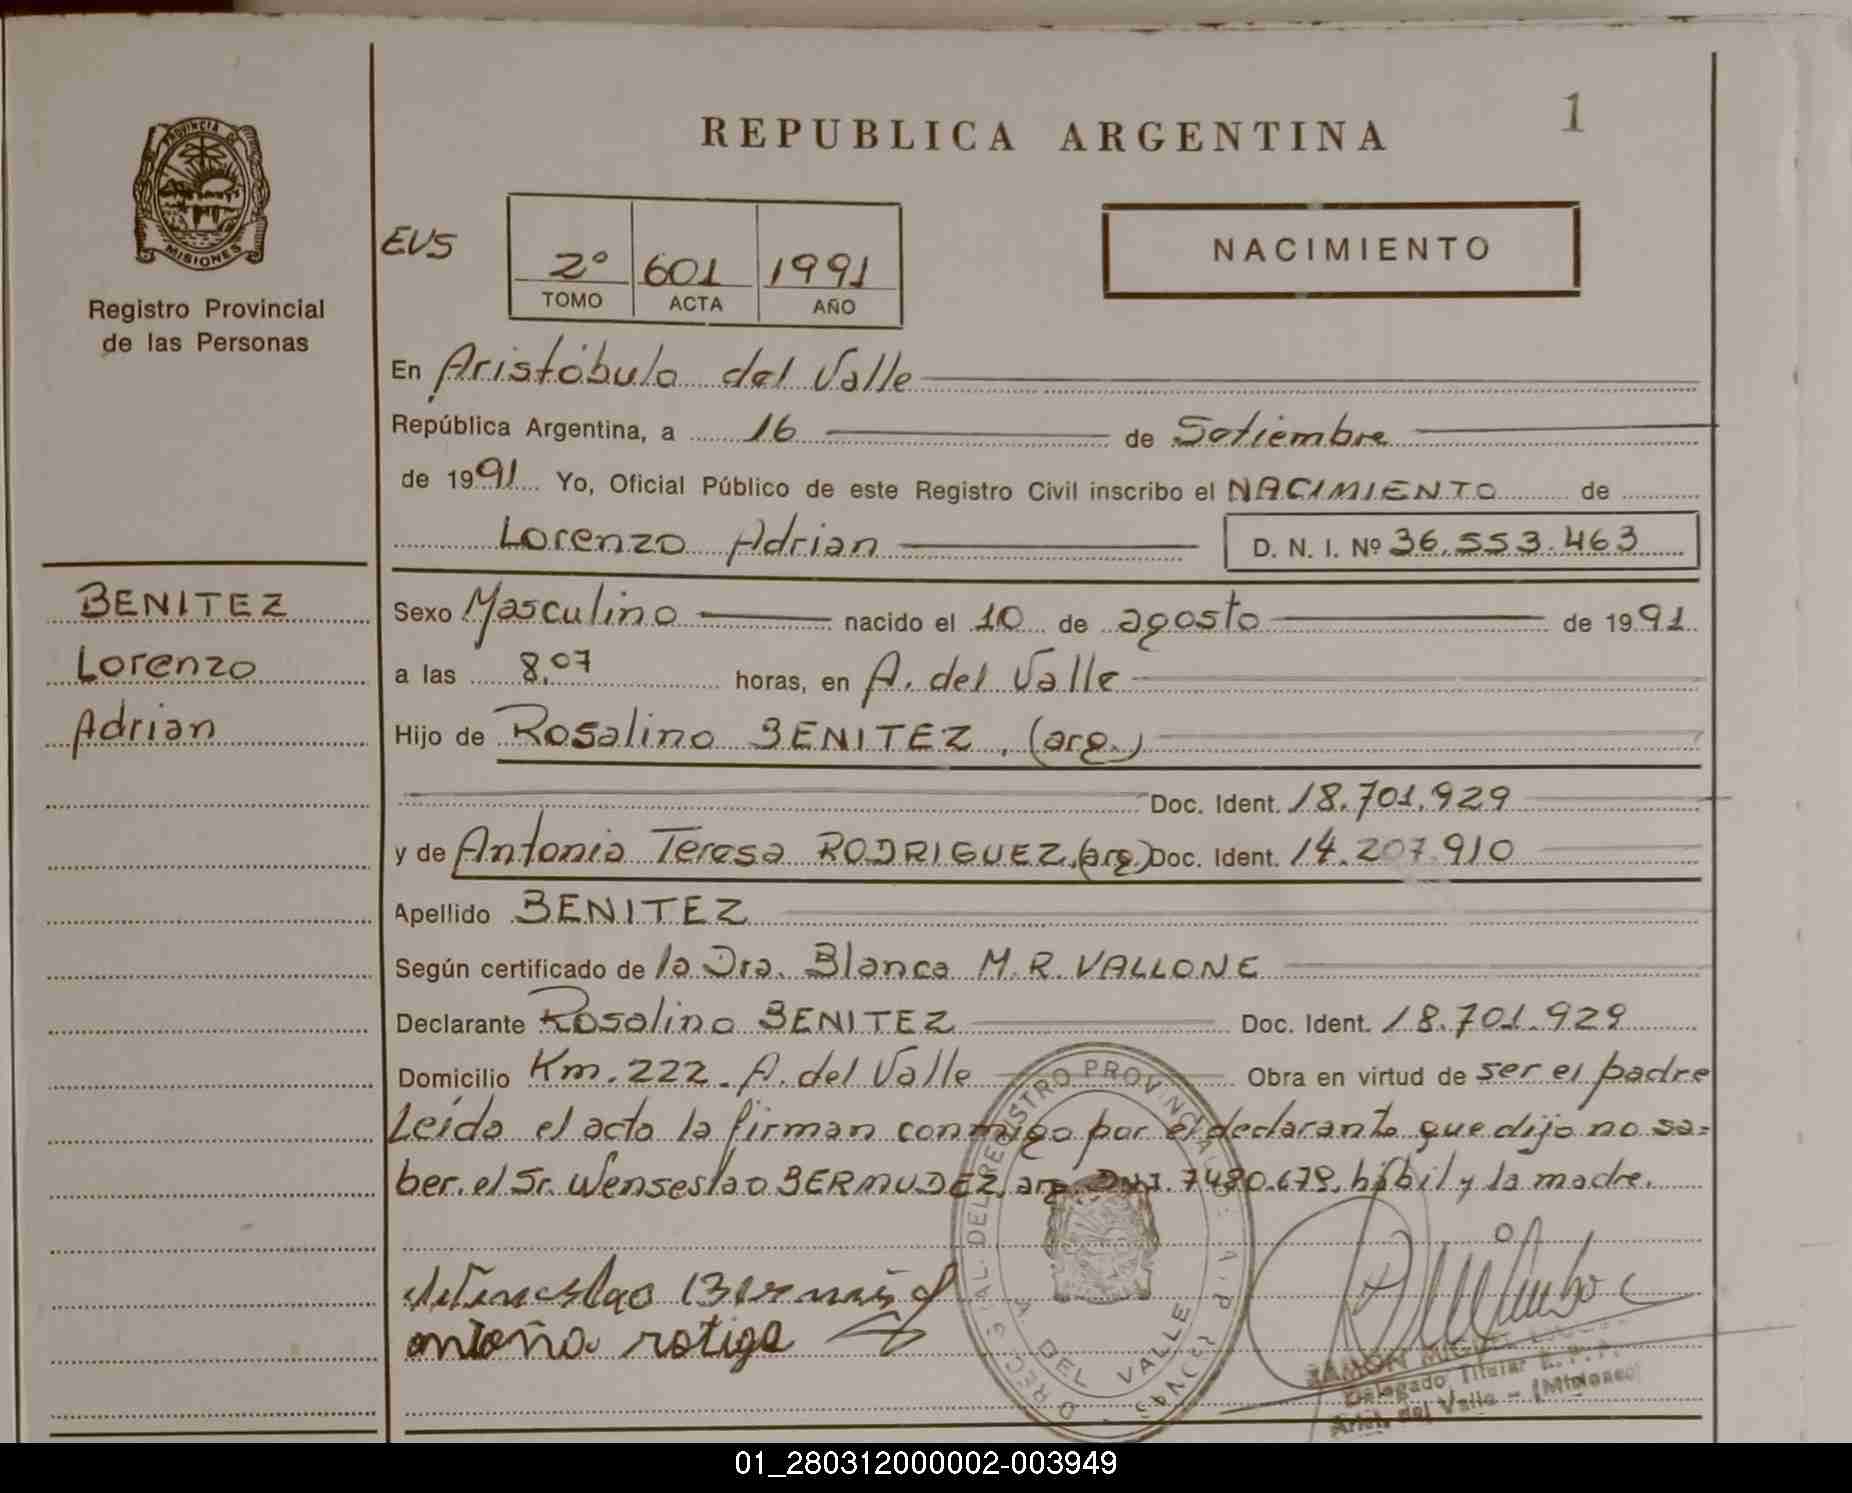 REPUBLICA ARGENTINA
1
PROVINCIA DE
MISIONES
Registro Provincial
de las Personas
EVS
2º 601 1991
TOMO ACTA AÑO
NACIMIENTO
En Aristóbulo del Valle
República Argentina, a 16 de Setiembre
de 1991 Yo, Oficial Público de este Registro Civil inscribo el NACIMIENTO de
Lorenzo Adrian D. N. I. Nº 36.553.463
BENITEZ
Lorenzo
Adrian
Sexo Masculino nacido el 10 de agosto de 1991
a las 8,07 horas, en A. del Valle
Hijo de Rosalino BENITEZ, (arg.)
Doc. Ident. 18.701.929
y de Antonia Teresa RODRIGUEZ,(arg.) Doc. Ident. 14.207.910
Apellido BENITEZ
Según certificado de la Dra. Blanca M. R. VALLONE
Declarante Rosalino BENITEZ Doc. Ident. 18.701.929
Domicilio Km. 222 - A. del Valle Obra en virtud de ser el padre
Leída el acta la firman conmigo por el declarante que dijo no sa=
ber, el Sr. Wenseslao BERMUDEZ, arg. DNI. 7480.678, hábil y la madre.
antoña rotiga
A. DEL VALLE
RAMON MIGUEL
Delegado Titular R. P. P.
Arist. del Valle - (Misiones)
01_280312000002-003949